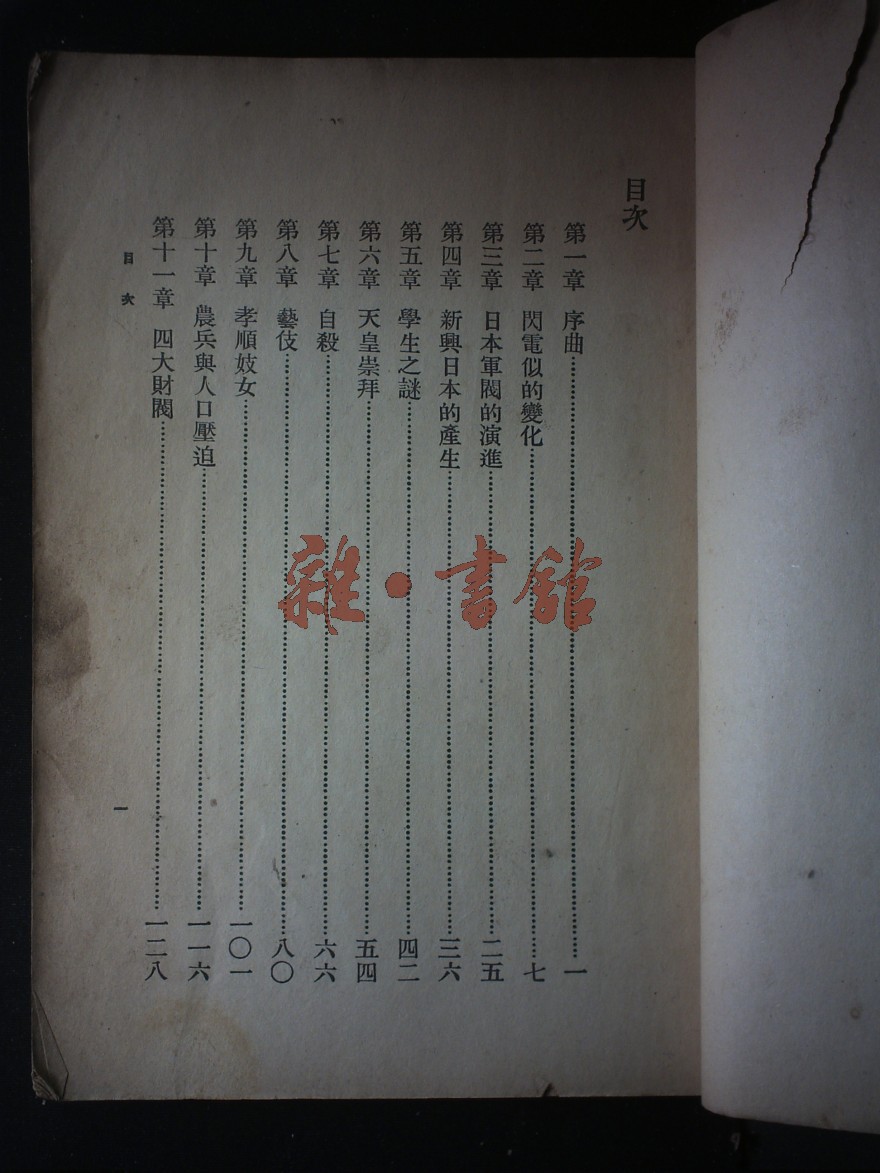 目次
第一章 序曲……一
第二章 閃電似的變化……七
第三章 日本軍閥的演進……二五
第四章 新興日本的產生……三六
第五章 學生之謎……四二
第六章 天皇崇拜……五四
第七章 自殺……六六
第八章 藝伎……八〇
第九章 孝順妓女……一〇一
第十章 農兵與人口壓迫……一一六
第十一章 四大財閥……一二八
目次
一
雜·書館